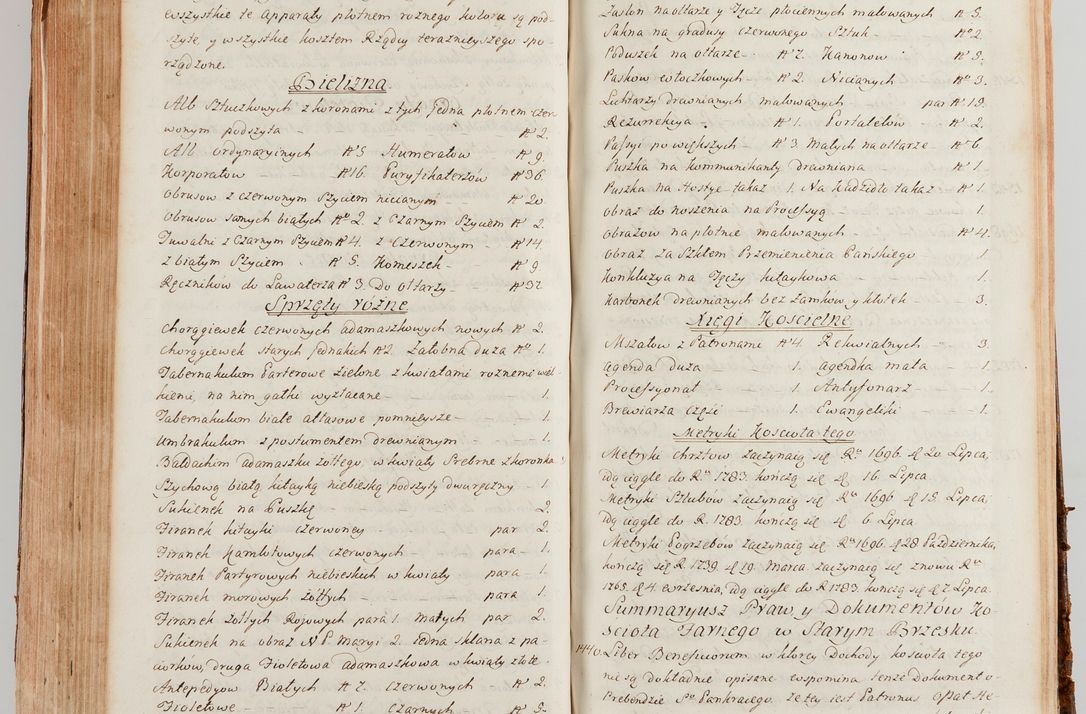 wszystkie te Apparaty płotnem rożnego koloru są pod-
szyte, y wszystkie kosztem Rządcy teraznieyszego spo-
rządzone.
Bielizna.
Alb Sztuczkowych z koronami z tych jedna płotnem czer-
wonym podszyta - N° 2.
Alb ordynaryinych N° 5 Humerałow N° 9.
Korporałow - N° 16. Puryfikaterzow N° 36.
Obrusow z czerwonym Szyciem nicianym N° 20.
Obrusow samych białych N° 2. z Czarnym Szyciem N° 2.
Tuwalni z Czarnym Szyciem N° 4. z Czerwonym - N° 14
z białym Szyciem . N° 5. Komeszek - N° 9
Ręcznikow do Lawaterza N° 3. Do ołtarzy - N° 32.
Sprzęty rożne
Chorągiewek czerwonych adamaszkowych nowych N° 2.
Chorągiewek starych jednakich N° 2. Załobna duza N° 1.
Tabernakulum Parterowe zielone z kwiatami roznemi wiel-
kiemi, na nim gałki wyzłacane - 1.
Tabernakulum białe atłasowe pomnieysze - 1.
Umbrakulum z postumentem drewnianym 1.
Baldachim adamaszku żołtego w kwiaty Srebrne z koronką
Szychową białą kitayką niebieską podszyty dwuręczny - 1.
Sukienek na Puszkę - 2.
Firanek kitayki czerwoney - par 2.
Firanek Kamlotowych czerwonych - para - 1.
Firanek Partyrowych niebieskich w kwiaty para 1.
Firanek morowych żołtych - para 1.
Firanek żołtych Rojowych para 1. małych par 2.
Sukienek na obraz N. P. Maryi 2. jedna szklana z pa-
ciorkow, druga Fioletowa adamaszkowa w kwiaty złote.
Antepedyow Białych N° 7. Czerwonych - N° 2.
Fioletowe - N° 1. Czarnych - N° 5.
Zasłon na ołtarze y Tęcze płociennych malowanych N° 5.
Sukna na gradusy czerwonego Sztuk - N° 2.
Poduszek na ołtarze - N° 7. Kanonow N° 9.
Paskow Nicianych N° 3.
Lichtarzy drewnianych malowanych par N° 19.
Rezurrekcya . N° 1. Portatelow - N° 2.
Passyi po większych - N° 3. Małych na ołtarze - N° 6
Puszka na Kommunikanty drewniana N° 1
Puszka na Hostye takaz 1. Na Kadzidło takaz N° 1.
Obraz do noszenia na Processyą - 1.
Obrazow na płotnie malowanych - N° 4.
Obraz za Szkłem Przemienienia Pańskiego - 1.
Konkluzya na Tęczy kitaykowa - 1.
Karbonek drewnianych bez zamkow y kłotek - 3.
Xięgi Kościelne
Mszałow z Patronami N° 4. Rekwialnych - 3.
Agenda duza 1. Agendka mała - 1.
Processyonał - 1. Antyfonarz - 1.
Brewiarza części - 1. Ewangeliki - 1.
Metryki Kościoła tego
Metryki Chrztow zaczynaią się R° 1696. d 20 Lipca,
idą ciągle do R° 1783. kończą się d. 16. Lipca.
Metryki Szlubow zaczynaią się R° 1696 d 15 Lipca
idą ciągle do R. 1783. kończą się d. 6 Lipca
Metryki Pogrzebow zaczynaią się R° 1696. d 28 Października,
kończą się R. 1739. d 19. Marca. zaczynaią się znowu R°
1765. d 4. września, idą ciągle do R 1783. kończą się d 7. Lipca
Summaryusz Praw, y Dokumentow Ko-
ścioła Farnego w Starym Brzesku.
1440. Liber Beneficiorum w ktorey Dochody kościoła tego
nie są dokładnie opisane wspomina tenze Dokument o
Prebendzie S° Pankracego. ze tey iest Patronus Opat He-